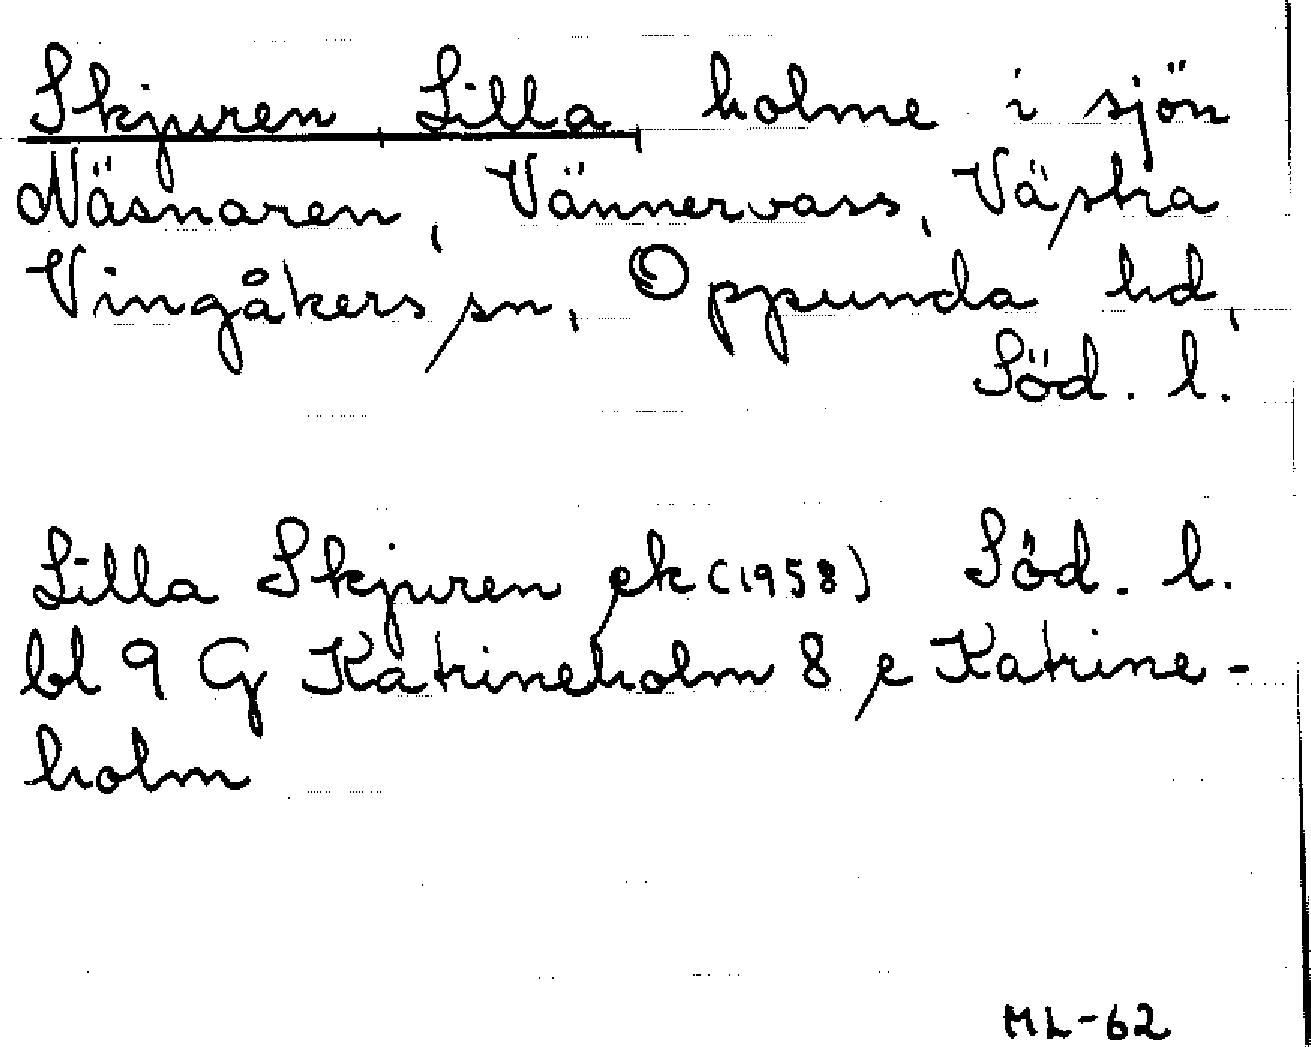 Skjuren, Lilla, holme i sjön
Näsnaren, Vännervass, Västra
Vingåkers sn, Oppunda hd,
Söd. l.
Lilla Skjuren ek (1958) Söd. l.
bl 9 G Katrineholm 8 e Katrine-
holm
ML-62